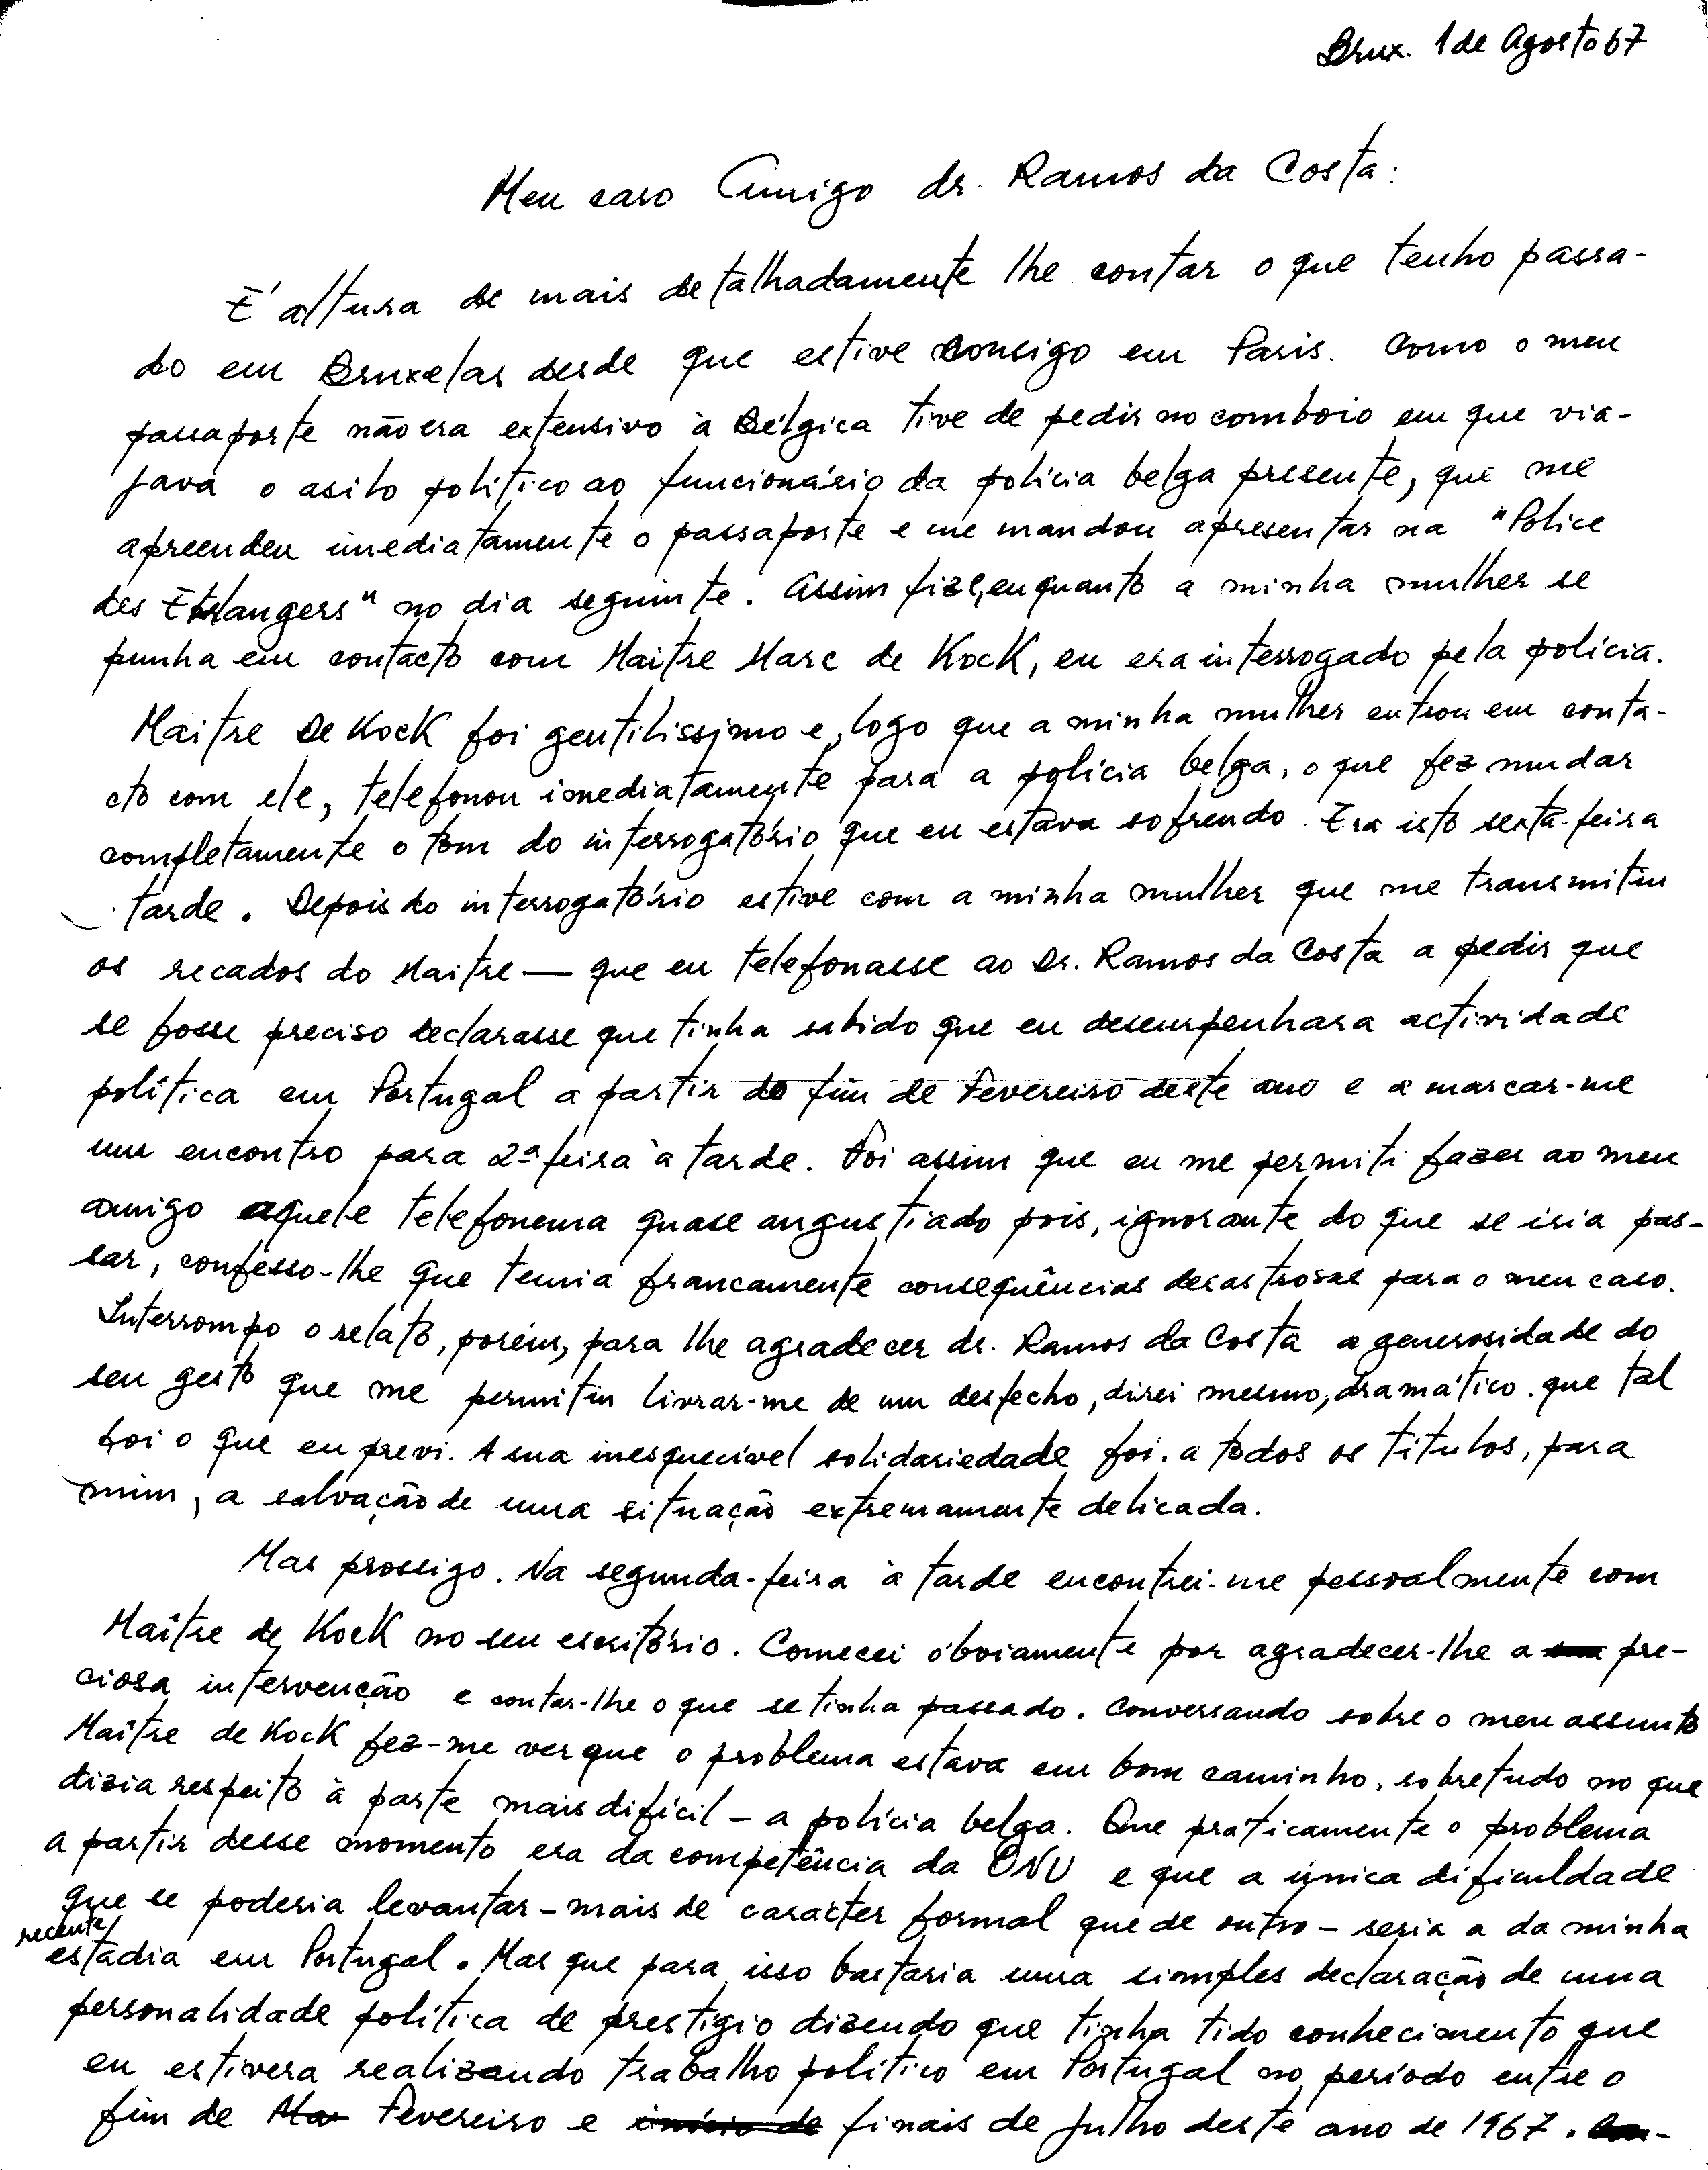 Brux. 1 de Agosto 67
Meu caro Amigo dr. Ramos da Costa:
É altura de mais detalhadamente lhe contar o que tenho passa-
do em Bruxelas desde que estive consigo em Paris. Como o meu
passaporte não era extensivo à Bélgica tive de pedir no comboio em que via-
java o asilo político ao funcionário da polícia belga presente, que me
apreendeu imediatamente o passaporte e me mandou apresentar na "Police
des Etrangers" no dia seguinte. Assim fiz e, enquanto a minha mulher se
punha em contacto com Maitre Marc de Kock, eu era interrogado pela polícia.
Maitre De Kock foi gentilissimo e, logo que a minha mulher entrou em conta-
cto com ele, telefonou imediatamente para a polícia belga, o que fez mudar
completamente o tom do interrogatório que eu estava sofrendo. Era isto sexta-feira
tarde. Depois do interrogatório estive com a minha mulher que me transmitiu
os recados do Maitre — que eu telefonasse ao Dr. Ramos da Costa a pedir que
se fosse preciso declarasse que tinha sabido que eu desempenhara actividade
política em Portugal a partir do fim de Fevereiro deste ano e a marcar-me
um encontro para 2ª feira à tarde. Foi assim que eu me permiti fazer ao meu
amigo aquele telefonema quase angustiado pois, ignorante do que se iria pas-
sar, confesso-lhe que temia francamente consequências desastrosas para o meu caso.
Interrompo o relato, porém, para lhe agradecer dr. Ramos da Costa a generosidade do
seu gesto que me permitiu livrar-me de um desfecho, direi mesmo, dramático. que tal
foi o que eu previ. A sua inesquecível solidariedade foi. a todos os títulos, para
mim, a salvação de uma situação extremamente delicada.
Mas prossigo. Na segunda-feira à tarde encontrei-me pessoalmente com
Maître de Kock no seu escritório. Comecei òbviamente por agradecer-lhe a pre-
ciosa intervenção e contar-lhe o que se tinha passado. Conversando sobre o meu assunto
Maître de Kock fez-me ver que o problema estava em bom caminho, sobretudo no que
dizia respeito à parte mais difícil - a polícia belga. Que praticamente o problema
a partir desse momento era da competência da ONU e que a única dificuldade
que se poderia levantar - mais de caracter formal que de outro - seria a da minha
recente
estadia em Portugal. Mas que para isso bastaria uma simples declaração de uma
personalidade política de prestígio dizendo que tinha tido conhecimento que
eu estivera realizando trabalho político em Portugal no período entre o
fim de Mar Fevereiro e início de finais de Julho deste ano de 1967.